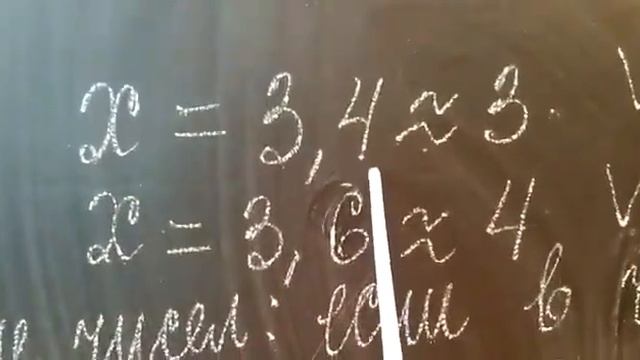 x = 3,4 ≈ 3.
x = 3,6 ≈ 4
чисел: если в